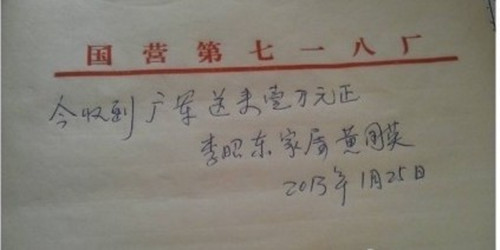 国营第七一八厂
今收到广军送来壹万元正
李昭东家属黄国英
2013年1月25日